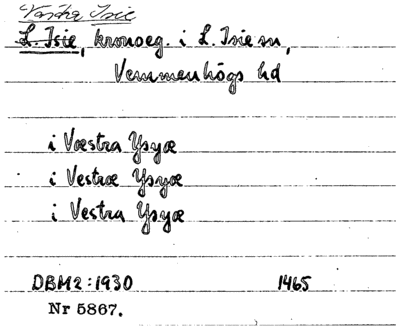 Västra Isie
L. Isie, kronoeg. i L. Isie sn,
Vemmenhögs hd
i Væstra Ysyæ
i Vestræ Ysyæ
i Vestra Ysyæ
DBM2:1930 1465
Nr 5867.